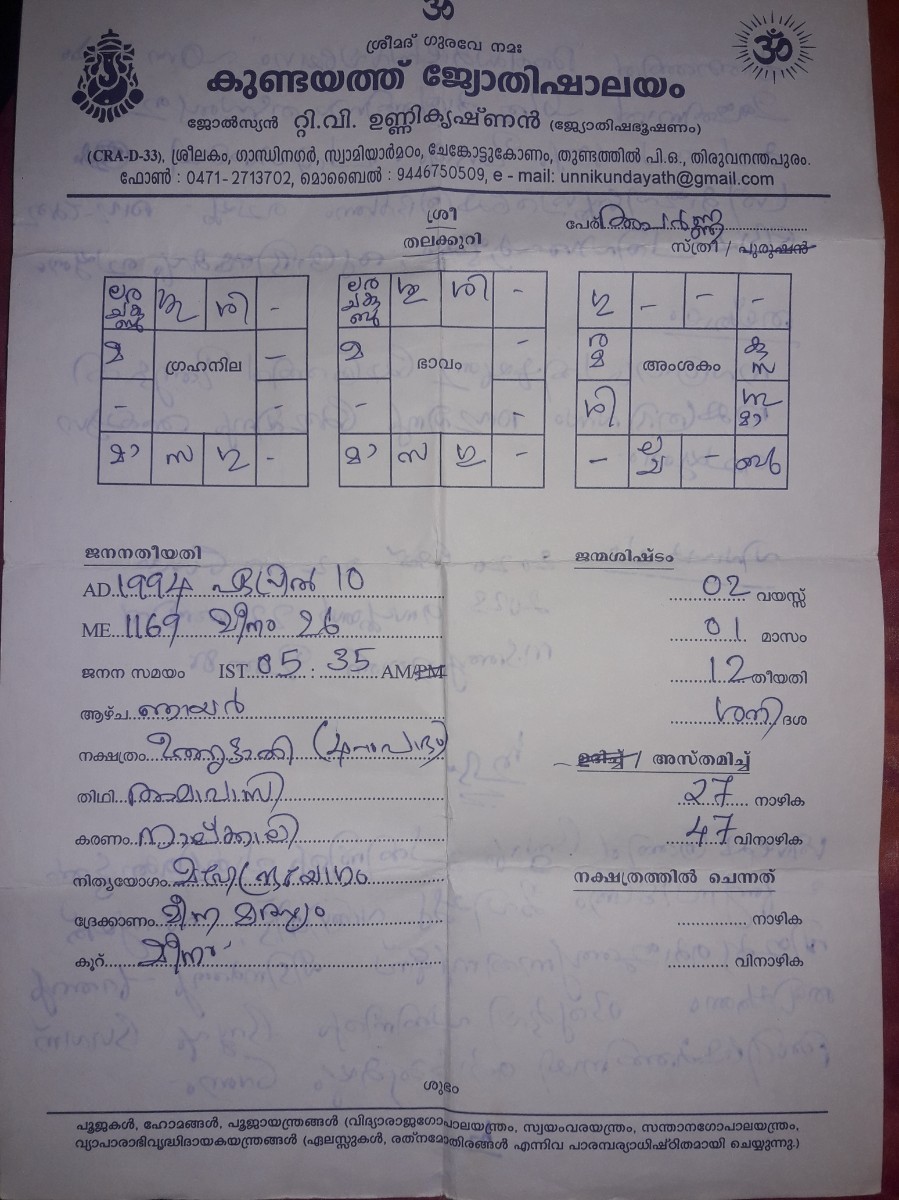 ॐ
ശ്രീമദ് ഗുരവേ നമഃ
ॐ
കുണ്ടയത്ത് ജ്യോതിഷാലയം
ജോൽസ്യൻ റ്റി.വി. ഉണ്ണികൃഷ്ണൻ (ജ്യോതിഷഭൂഷണം)
(CRA-D-33), ശ്രീലകം, ഗാന്ധിനഗർ, സ്വാമിയാർമഠം, ചേങ്കോട്ടുകോണം, തുണ്ടത്തിൽ പി.ഒ., തിരുവനന്തപുരം.
ഫോൺ : 0471-2713702, മൊബൈൽ : 9446750509, e - mail: unnikundayath@gmail.com
ശ്രീ
തലക്കുറി
പേര്
സ്ത്രീ / പുരുഷൻ
ല ര ശു ശി -
ച കു
ബു
മ ഗ്രഹനില -
- -
മാ സ ഗു -
ല ര ശു ശി -
ച കു
ബു
മ ഭാവം -
- -
മാ സ ഗു -
ഗു - - -
ര
മ അംശകം കു
സ
ശി ശു
മാ
- ല
ച - ബു
ജനനതീയതി
AD 1994 ഏപ്രിൽ 10
ME 1169 മീനം 26
ജനന സമയം IST 05 : 35 AM/PM
ആഴ്ച ഞായർ
നക്ഷത്രം ഉത്രട്ടാതി
തിഥി അമാവാസി
കരണം നാല്ക്കാലി
നിത്യയോഗം
ദ്രേക്കാണം മീന
കൂറ് മീനം
ജന്മശിഷ്ടം
02 വയസ്സ്
01 മാസം
12 തീയതി
ശനി ദശ
ഉദിച്ച് / അസ്തമിച്ച്
27 നാഴിക
47 വിനാഴിക
നക്ഷത്രത്തിൽ ചെന്നത്
നാഴിക
വിനാഴിക
ശുഭം
പൂജകൾ, ഹോമങ്ങൾ, പൂജായന്ത്രങ്ങൾ (വിദ്യാരാജഗോപാലയന്ത്രം, സ്വയംവരയന്ത്രം, സന്താനഗോപാലയന്ത്രം,
വ്യാപാരാഭിവൃദ്ധിദായകയന്ത്രങ്ങൾ (ഏലസ്സുകൾ, രത്നമോതിരങ്ങൾ എന്നിവ പാരമ്പര്യാധിഷ്ഠിതമായി ചെയ്യുന്നു.)